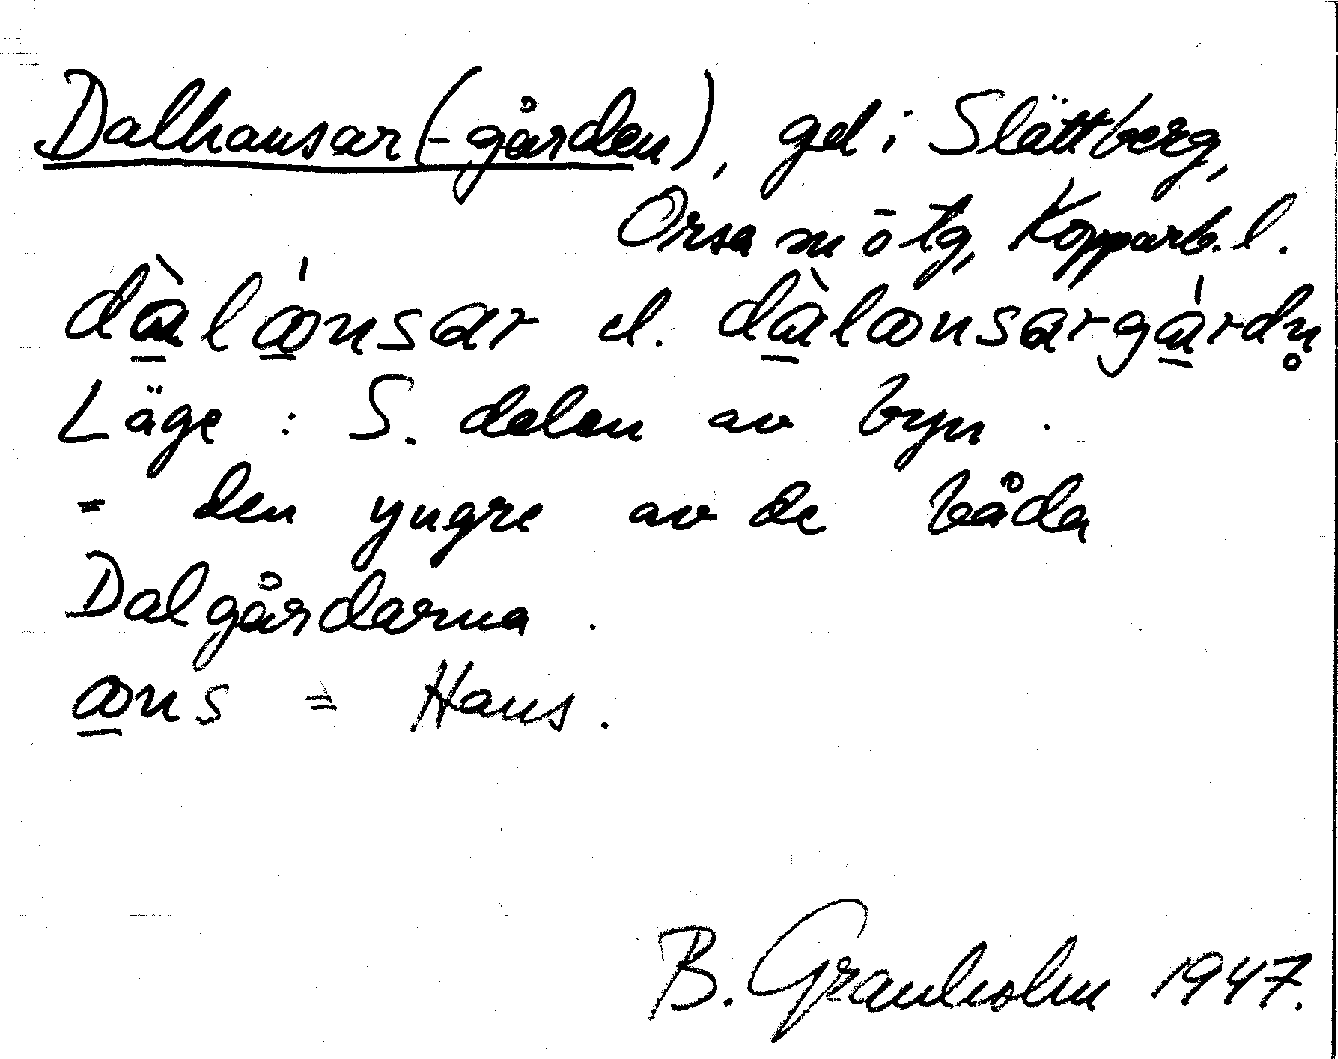 Dalhansar(-gården), gd i Slättberg,
Orsa sn ö tg, Kopparb. l.
dàla̲ónsar el. dàlaonsargárdn̥
Läge : S. delen av byn .
= den yngre av de båda
Dalgårdarna .
aons = Hans .
B. Granholm 1947.